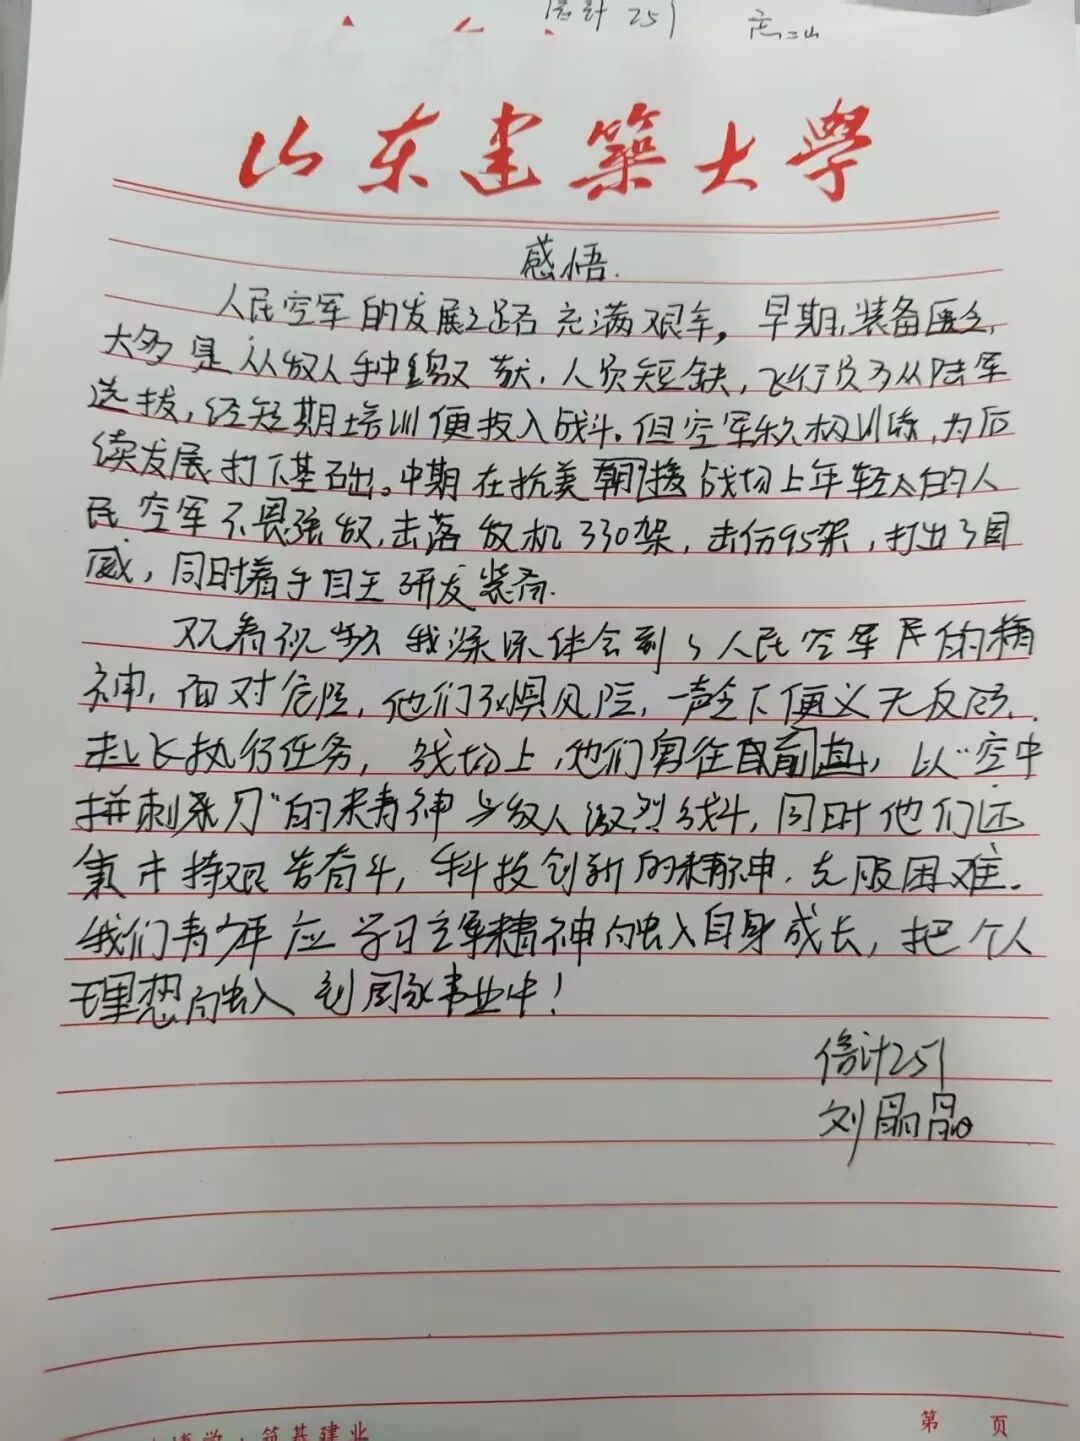 信计251
山东建築大學
感悟.
人民空军的发展之路充满艰辛。早期,装备匮乏,
大多是从敌人手中缴获 ,人员短缺,飞行员多从陆军
选拔,经短期培训便投入战斗。但空军积极训练,为后
续发展打下基础。中期在抗美朝援战场上年轻的人
民空军不畏强敌,击落敌机330架,击伤95架,打出了国
威,同时着手自主研发装备.
观看视频我深深体会到了人民空军 的精
神,面对危险,他们不惧风险,一声令下便义无反顾
起飞执行任务,战场上,他们勇往直前,以“空中
拼刺刀”的精神与敌人激烈战斗,同时他们还
秉持艰苦奋斗,科技创新的精神,克服困难。
我们青少年应学习空军精神融入自身成长,把个人
理想融入到国家事业中!
信计251
刘晶晶
筑基建业
第 页